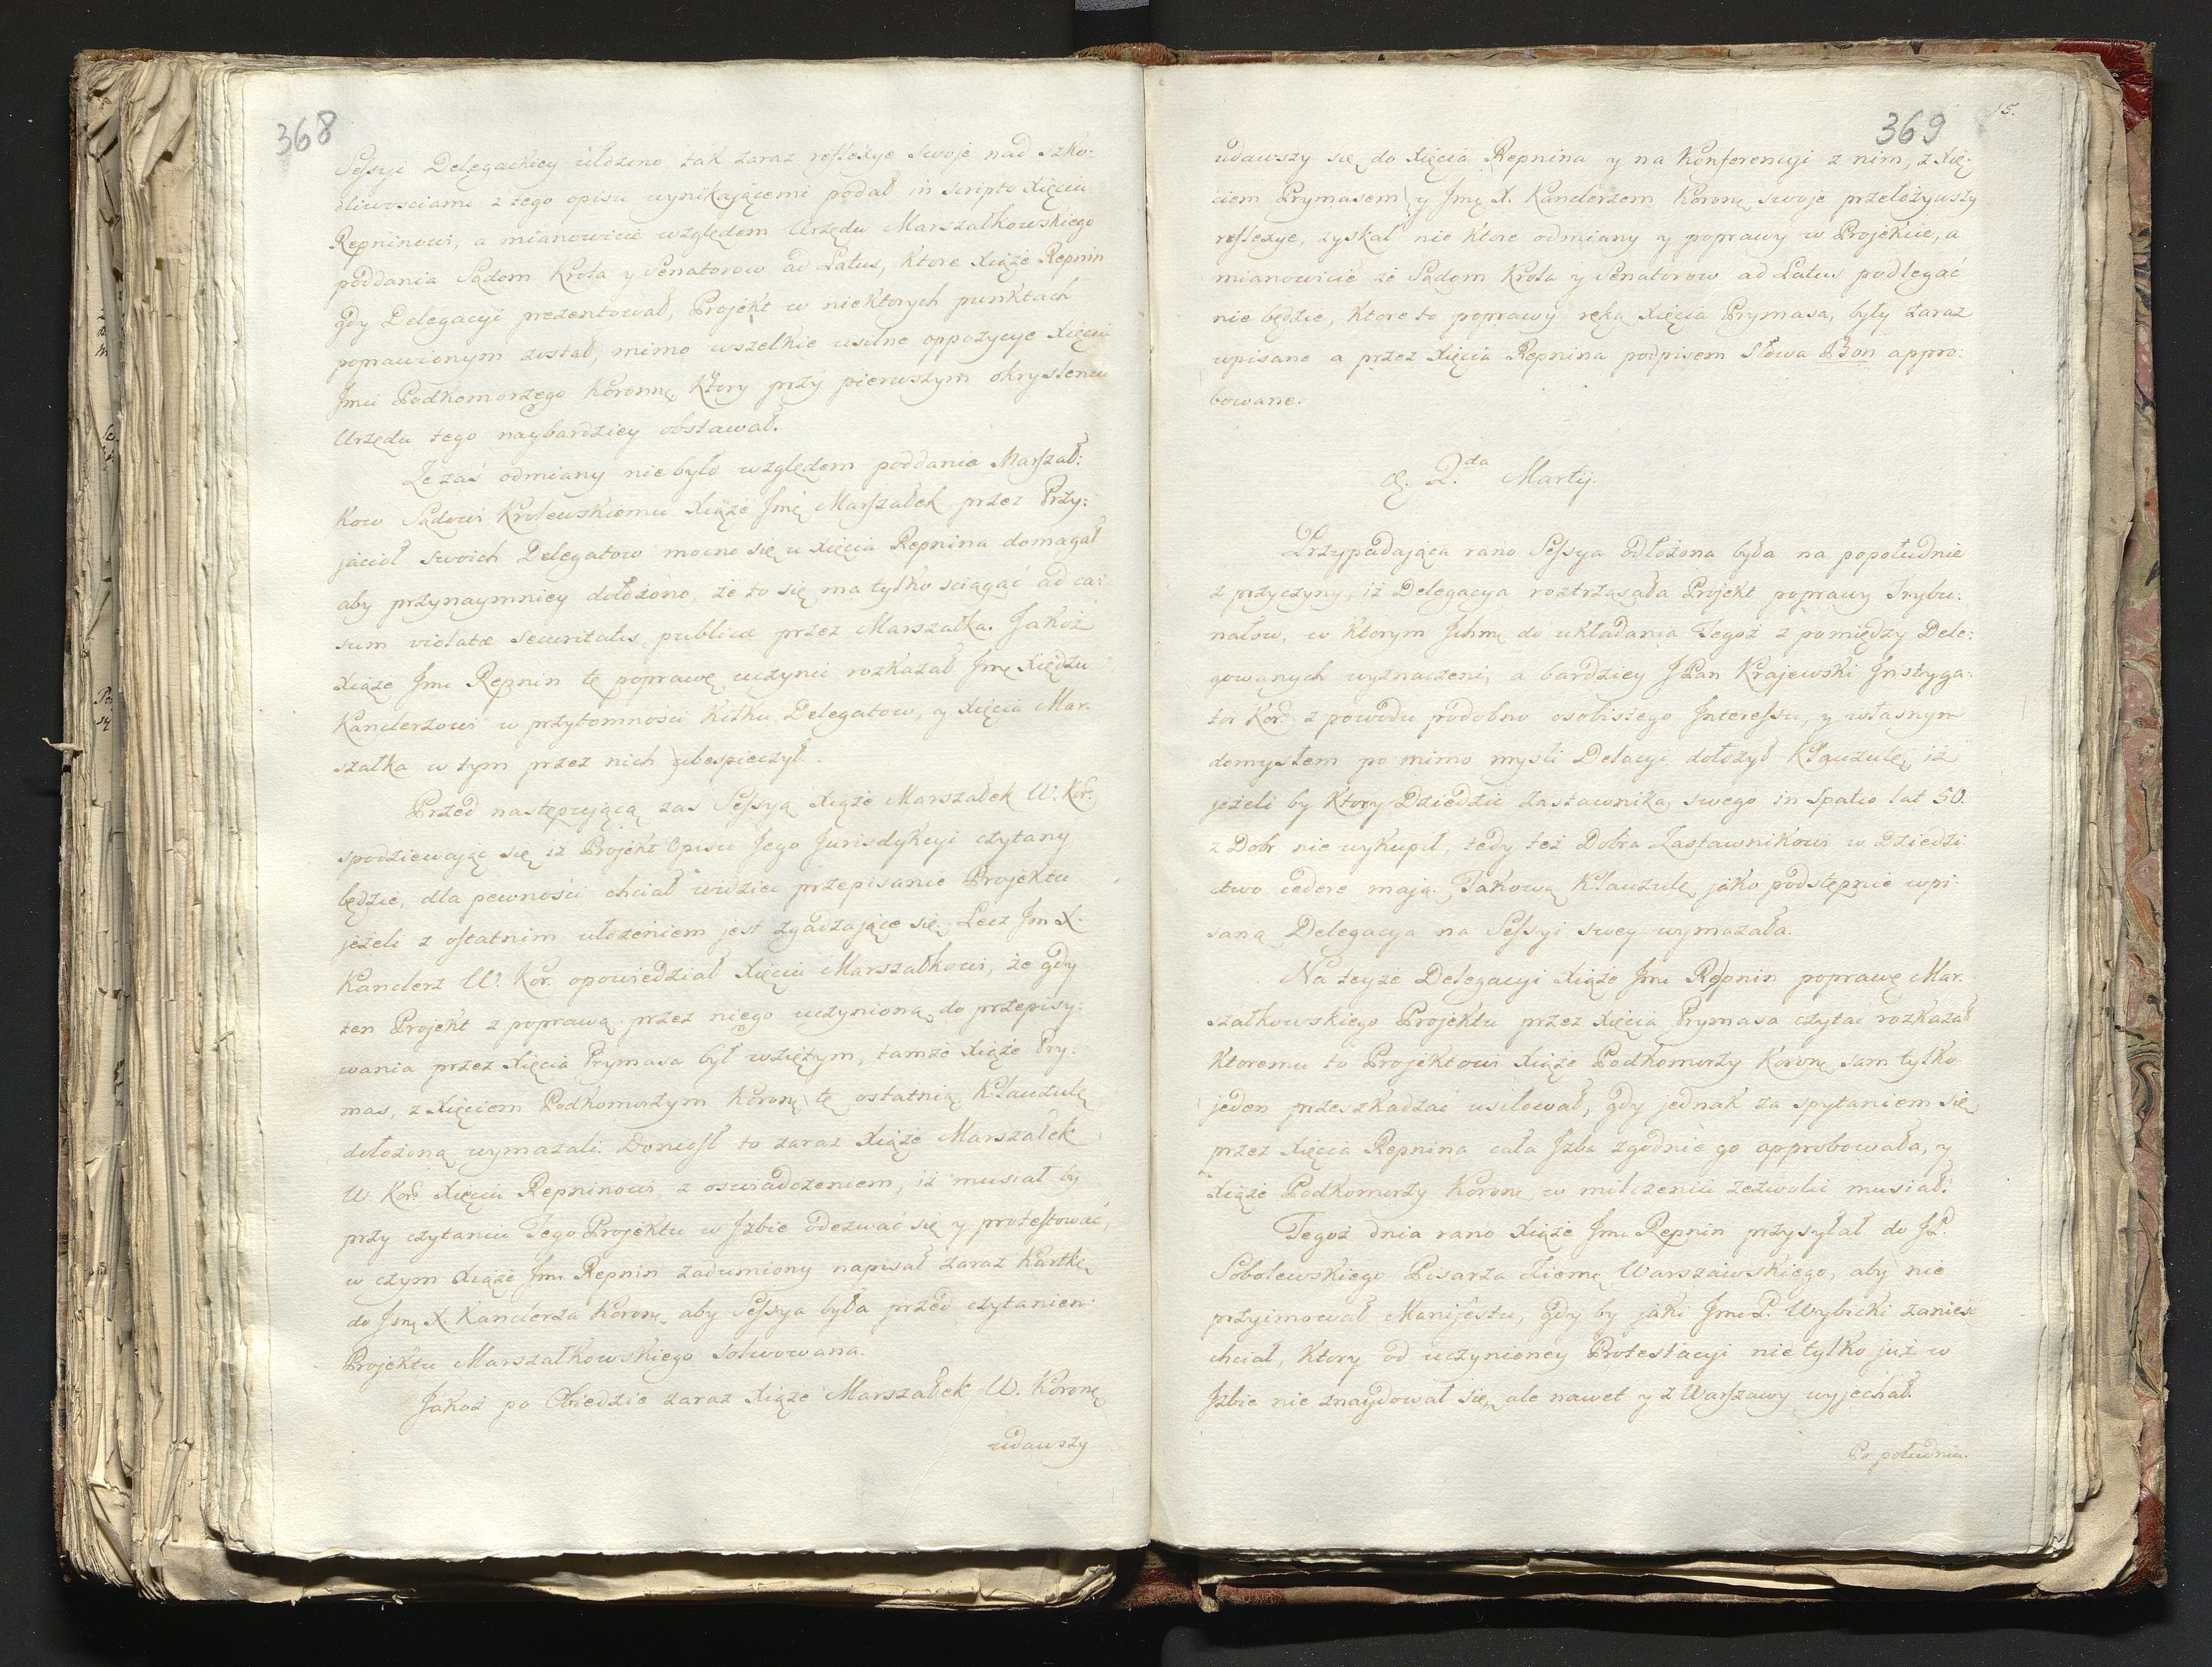 368
Sessyi Delegackiey ułożono, tak zaraz reflexye swoje nad szko:
dliwosciami z tego opisu wynikaiącemi podał in scripto Xięciu
Repninowi, a mianowicie względem Urzędu Marszałkowskiego
poddania Sądom Krola y Senatorow ad Latus, ktore Xiąże Repnin
gdy Delegacyi prezentował, Projekt w niektorych punktach
poprawionym został, mimo wszelkie usilne oppozycye Xięcia
Jmci Podkomorzego Koronne, ktory przy pierwszym okryśleniu
Urzędu tego naybardziey obstawał.
Że zaś odmiany nie było względem poddania Marszał:
kow Sądowi Krolewskiemu Xiąże Jmć Marszałek przez Przy:
jacioł swoich Delegatow mocno się u Xięcia Repnina domagał
aby przynaymniey dołożono, że to się ma tylko sciągać ad ca:
sum violatæ securitatis publicæ przez Marszałka. Jakoż
Xiąże Jmć Repnin tę poprawę uczynić rozkazał Jmć Xiędzu
Kanclerzowi w przytomności kilku Delegatow, y Xięcia Mar.
szałka w tym przez nich ubespieczył.
Przed następuiącą zas Sessyą Xiąże Marszałek W. Kor.
spodziewaiąc się iż Projekt Opisu Jego Jurisdykcyi czytany
będzie, dla pewności chciał widzieć przepisanie Projektu
jeżeli z ostatnim ułożeniem jest zgadzaiące się. Lecz Jm X.
Kanclerz W. Kor. opowiedział Xięciu Marszałkowi, że gdy
ten Projekt z poprawą przez niego uczynioną do przepisy:
wania przez Xięcia Prymasa był wziętym, tamże Xiąże Pry:
mas, z Xięciem Podkomorzym Koronę tę ostatnią Klauzulę
dołożoną wymazali. Doniosł to zaraz Xiąże Marszałek
W Kor. Xięciu Repninowi z oswiadczeniem, iż musiał by
przy czytaniu Tego Projektu w Izbie odezwać się y protestować,
w czym Xiąże Jmć Repnin zadumiony napisał zaraz Kartkę
do Jmę X. Kanclerza Koronę aby Sessya była przed czytaniem
Projektu Marszałkowskiego solwowana.
Jakoż po Obiedzie zaraz Xiąże Marszałek W. Koronę
udawszy
15.
369
udawszy się do Xięcia Repnina y na Konferencyi z nim, z Xię:
ciem Prymasem y Jmę X. Kanclerzem Koronę swoje przełożywszy
reflexye, zyskał nie ktore odmiany y poprawy w Projekcie, a
mianowicie że Sądom Krola y Senatorow ad Latus podlegać
nie będzie, ktore to poprawy ręką Xięcia Prymasa, były zaraz
wpisane a przez Xięcia Repnina podpisem Słowa Bon appro:
bowane.
d. 2.da Martij.
Przypadaiąca rano Sessya odłożona była na popołudnie
z przyczyny, iż Delegacya roztrząsała Projekt poprawy Trybu:
nałow, w ktorym Ichmę do układania Tegoż z pomiędzy Dele:
gowanych wyznaczeni, a bardziey JPan Krajewski Instyga:
tor Kor. z powodu podobno osobistego Interessu, y własnym
domysłem po mimo mysli Delacyi dołożył Klauzulę, iż
jeżeli by ktory Dziedzic Zastawnika swego in Spatio lat 50.
z Dobr nie wykupił, tedy też Dobra Zastawnikowi w Dziedzi
ctwo cedere maią. Takową Klauzulę jako podstępnie wpi
saną Delegacya na Sessyi swey wymazała.
Na teyże Delegacyi Xiąże Jmć Repnin poprawę Mar.
szałkowskiego Projektu przez Xięcia Prymasa czytać rozkazał
Ktoremu to Projektowi Xiąże Podkomorzy Koronę sam tylko
jeden przeszkadzać usiłował, gdy jednak za spytaniem się
przez Xięcia Repnina cała Izba zgodnie go approbowała, y
Xiąże Podkomorzy Koronę w milczeniu zezwolić musiał.
Tegoż dnia rano Xiąże Jmć Repnin przysyłał do JP.
Sobolewskiego Pisarza Ziemę Warszawskiego, aby nie
przyimował Manifestu, gdy by jaki Jmć P. Wybicki zaniesć
chciał, ktory od uczynioney Protestacyi nie tylko już w
Izbie nie znaydował się, ale nawet y z Warszawy wyjechał.
Po południu.